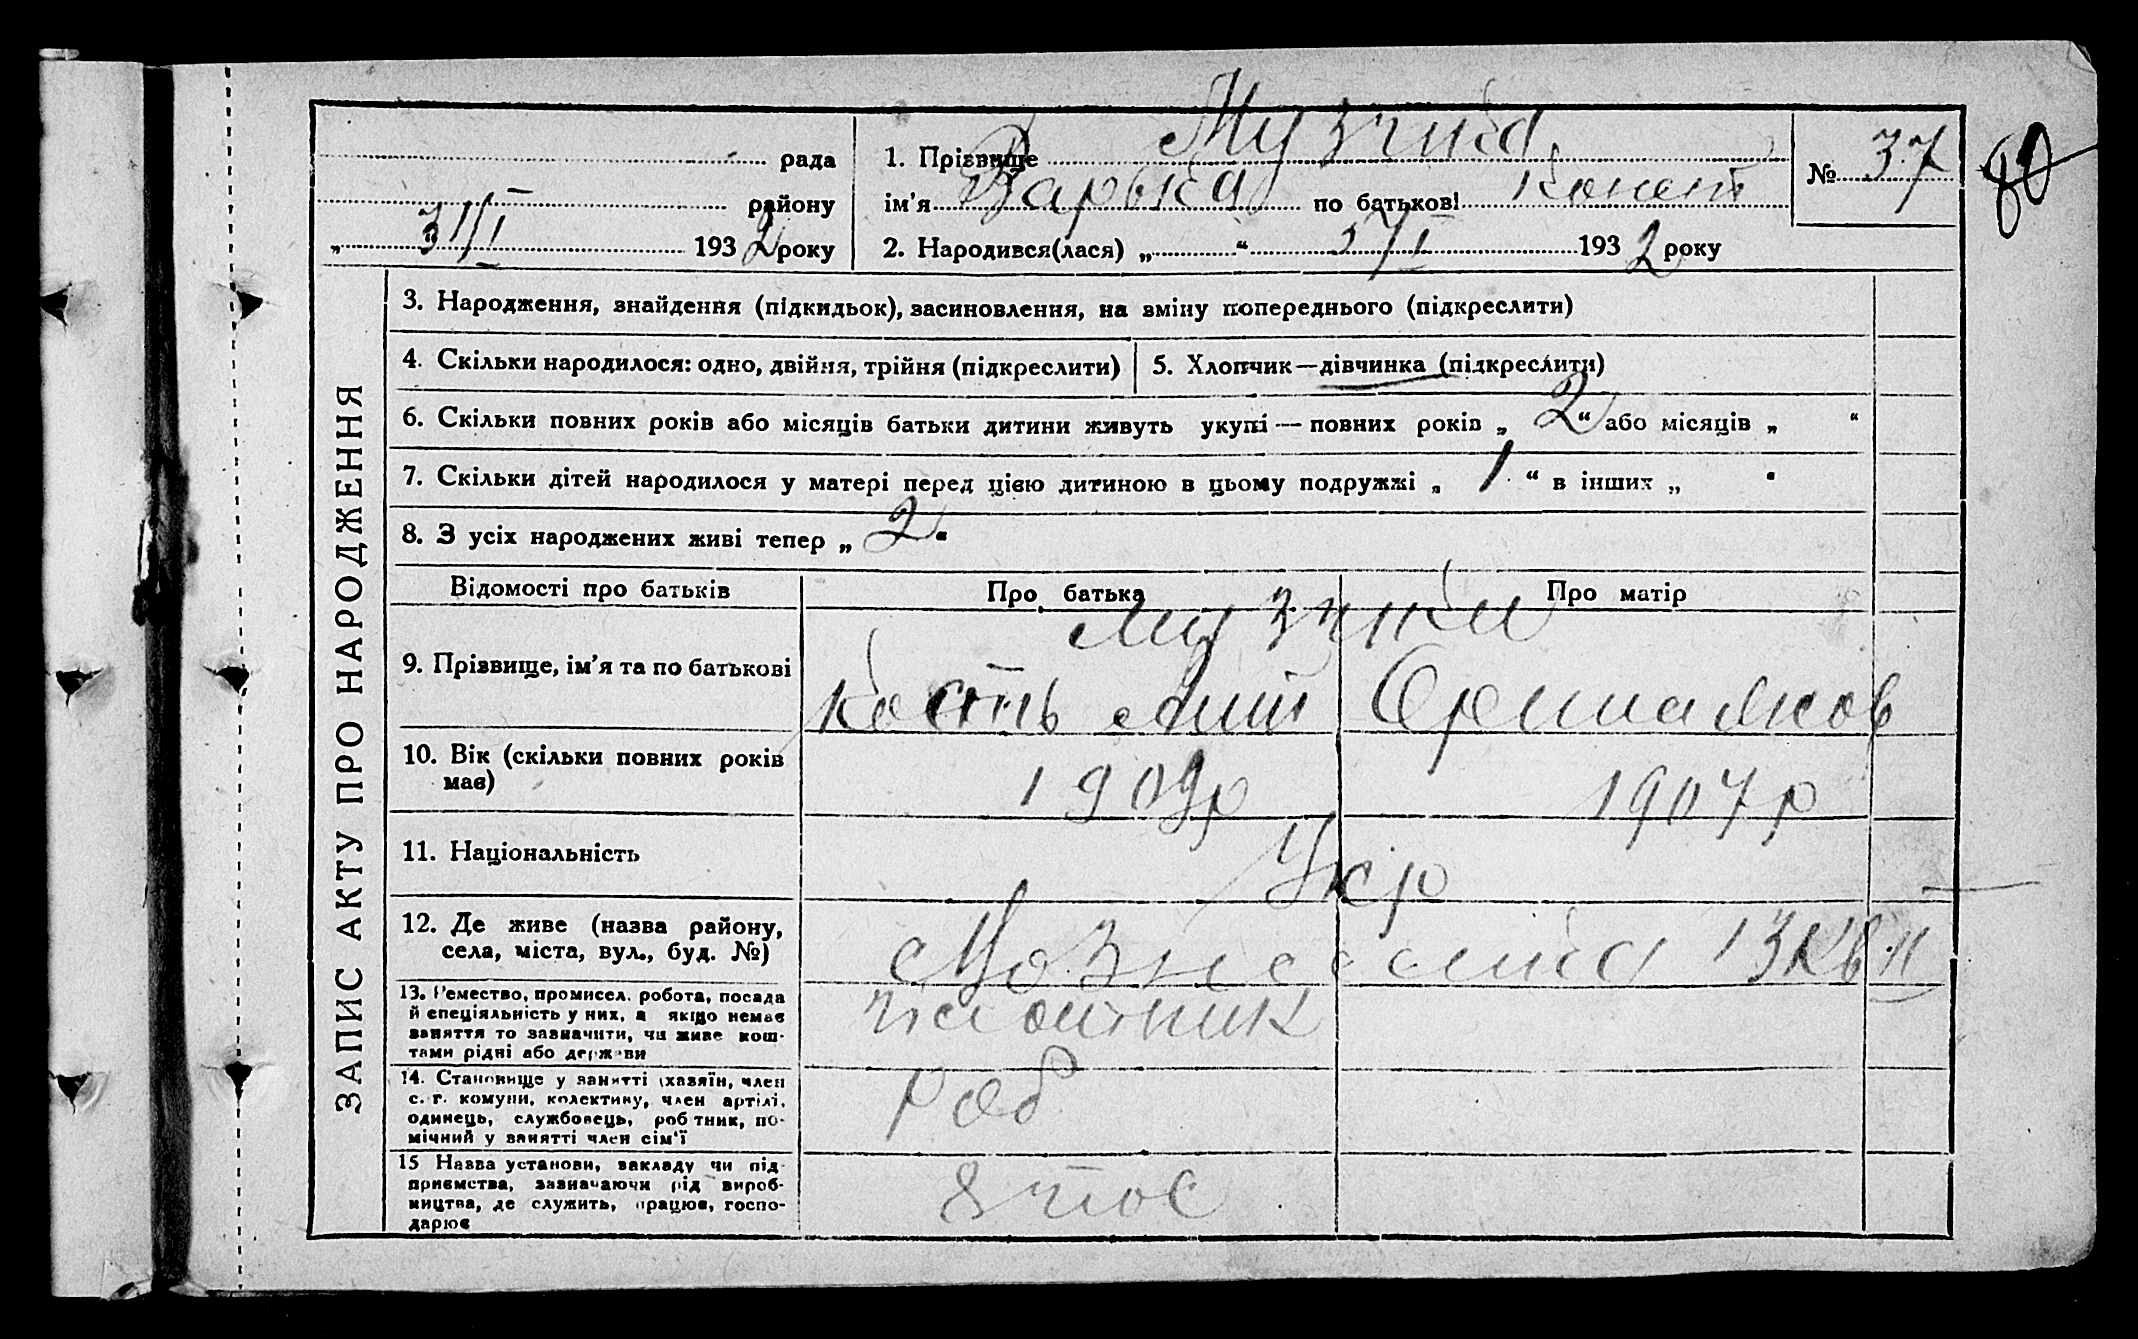 Музчина
рада 1. Прізвище № 37 80
району ім'я Варька по батькові Конст
„ 31/I 1932 року 2. Народився(лася) „ “ 5/I 1932 року
ЗАПИС АКТУ ПРО НАРОДЖЕННЯ
3. Народження, знайдення (підкидьок), засиновлення, на зміну попереднього (підкреслити)
4. Скільки народилося: одно, двійня, трійня (підкреслити) 5. Хлопчик—дівчинка (підкреслити)
6. Скільки повних років або місяців батьки дитини живуть укупі — повних років „ 2 “ або місяців „ “
7. Скільки дітей народилося у матері перед цією дитиною в цьому подружжі „ 1 “ в інших „ “
8. З усіх народжених живі тепер „ 2 “
Відомості про батьків Про батька Про матір
9. Прізвище, ім'я та по батькові
Кость Орина Яков
10. Вік (скільки повних років
має) 1909р 1907р
11. Національність Укр
12. Де живе (назва району,
села, міста, вул., буд. №)
13. Ремество, промисел, робота, посада
й спеціяльність у них, а якщо немає
заняття то зазначити, чи живе кош-
тами рідні або держави
плотник
14. Становище у занятті (хазяїн, член
с.-г. комуни, колективу, член артілі,
одинець, службовець, робітник, по-
мічний у занятті член сім'ї
роб
15 Назва установи, закладу чи під-
приємства, зазначаючи рід вироб-
ництва, де служить, працює, госпо-
дарює